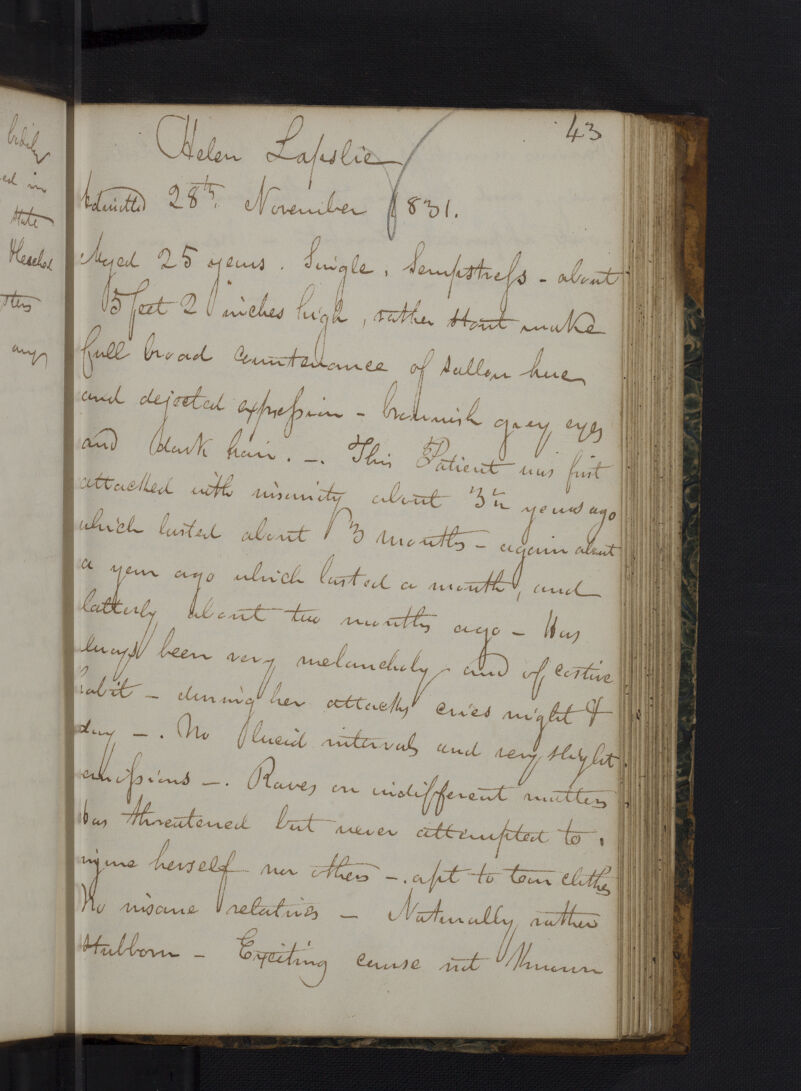 43
Helen Lapslie
Admitted 28th. November 1831.
Aged 25 years. Single. Sempstress - about
5 feet 2 inches high, rather stout make
full broad countenance of sallow hue
and dejected expression - brownish grey eyes
and dark hair. -. This Patient was first
attacked with insanity about 3½ years ago
which lasted about 3 months - again about
a year ago which lasted a month, and
latterly about two months ago - Has
always been very melancholy and of costive
habit - during her attacks cries night &
day -. No lucid intervals and very slight
remissions -. Raves on indifferent matters
has threatened but never attempted to
injure herself nor others -. apt to tear clothes
No insane relatives - Naturally rather
stubborn - Exciting cause not known
bodily
ed in
state